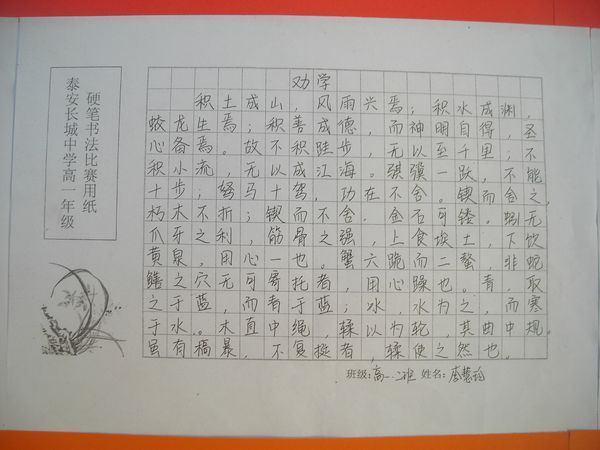 硬笔书法比赛用纸
泰安长城中学高一年级
劝学
积土成山，风雨兴焉；积水成渊，
蛟龙生焉；积善成德，而神明自得，圣
心备焉。故不积跬步，无以至千里；不
积小流，无以成江海。骐骥一跃，不能
十步；驽马十驾，功在不舍。锲而舍之，
朽木不折；锲而不舍，金石可镂。蚓无
爪牙之利，筋骨之强，上食埃土，下饮
黄泉，用心一也。蟹六跪而二螯，非蛇
鳝之穴无可寄托者，用心躁也。青，取
之于蓝，而青于蓝；冰，水为之，而寒
于水。木直中绳，輮以为轮，其曲中规。
虽有槁暴，不复挺者，輮使之然也。
班级：高一.二班 姓名：李慧